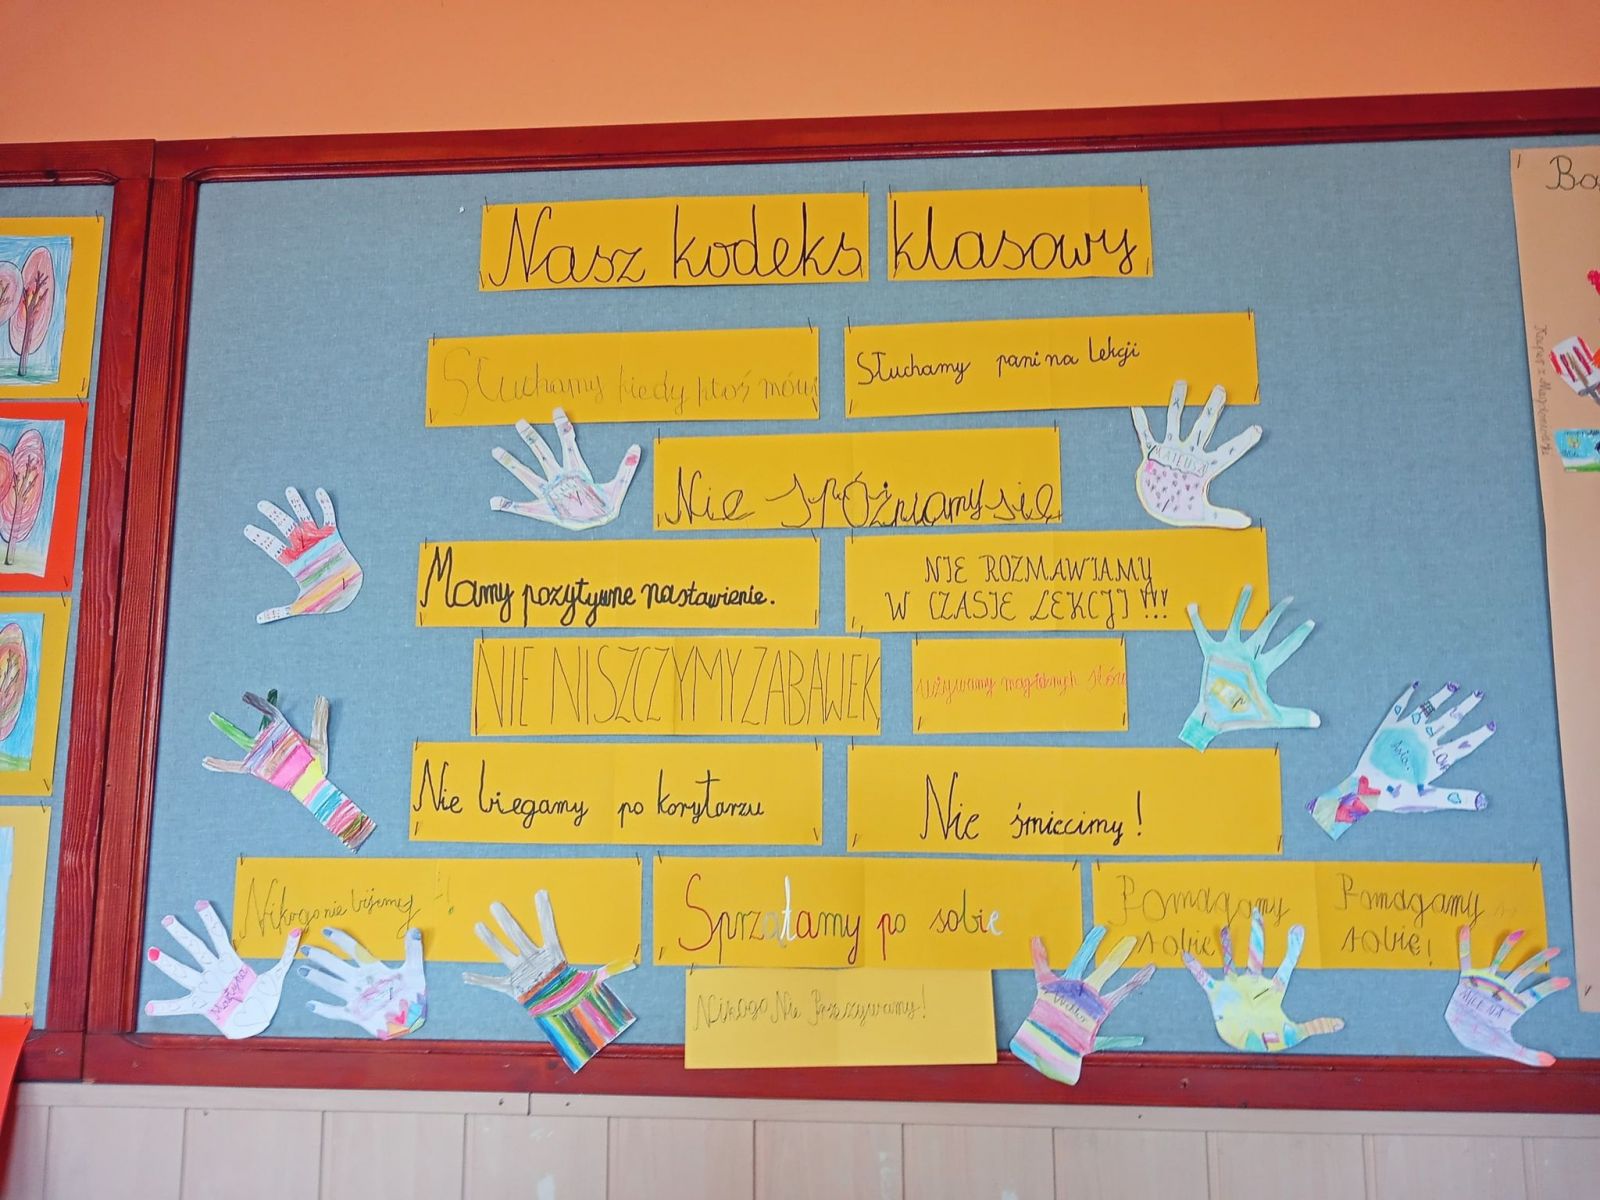 Nasz kodeks klasowy
Słuchamy kiedy ktoś mówi
Słuchamy pani na lekcji
Nie spóźniamy się
Mamy pozytywne nastawienie.
NIE ROZMAWIAMY
W CZASIE LEKCJI !!!
NIE NISZCZYMY ZABAWEK
używamy magicznych słów
Nie biegamy po korytarzu
Nie śmiecimy!
Nikogo nie bijemy !!
Sprzątamy po sobie
Pomagamy
sobie
Pomagamy
sobie!
Nikogo Nie Przezywamy!
MATEUSZ
Asia
LOV
Martyna
Wiktor
MILENA
Ba